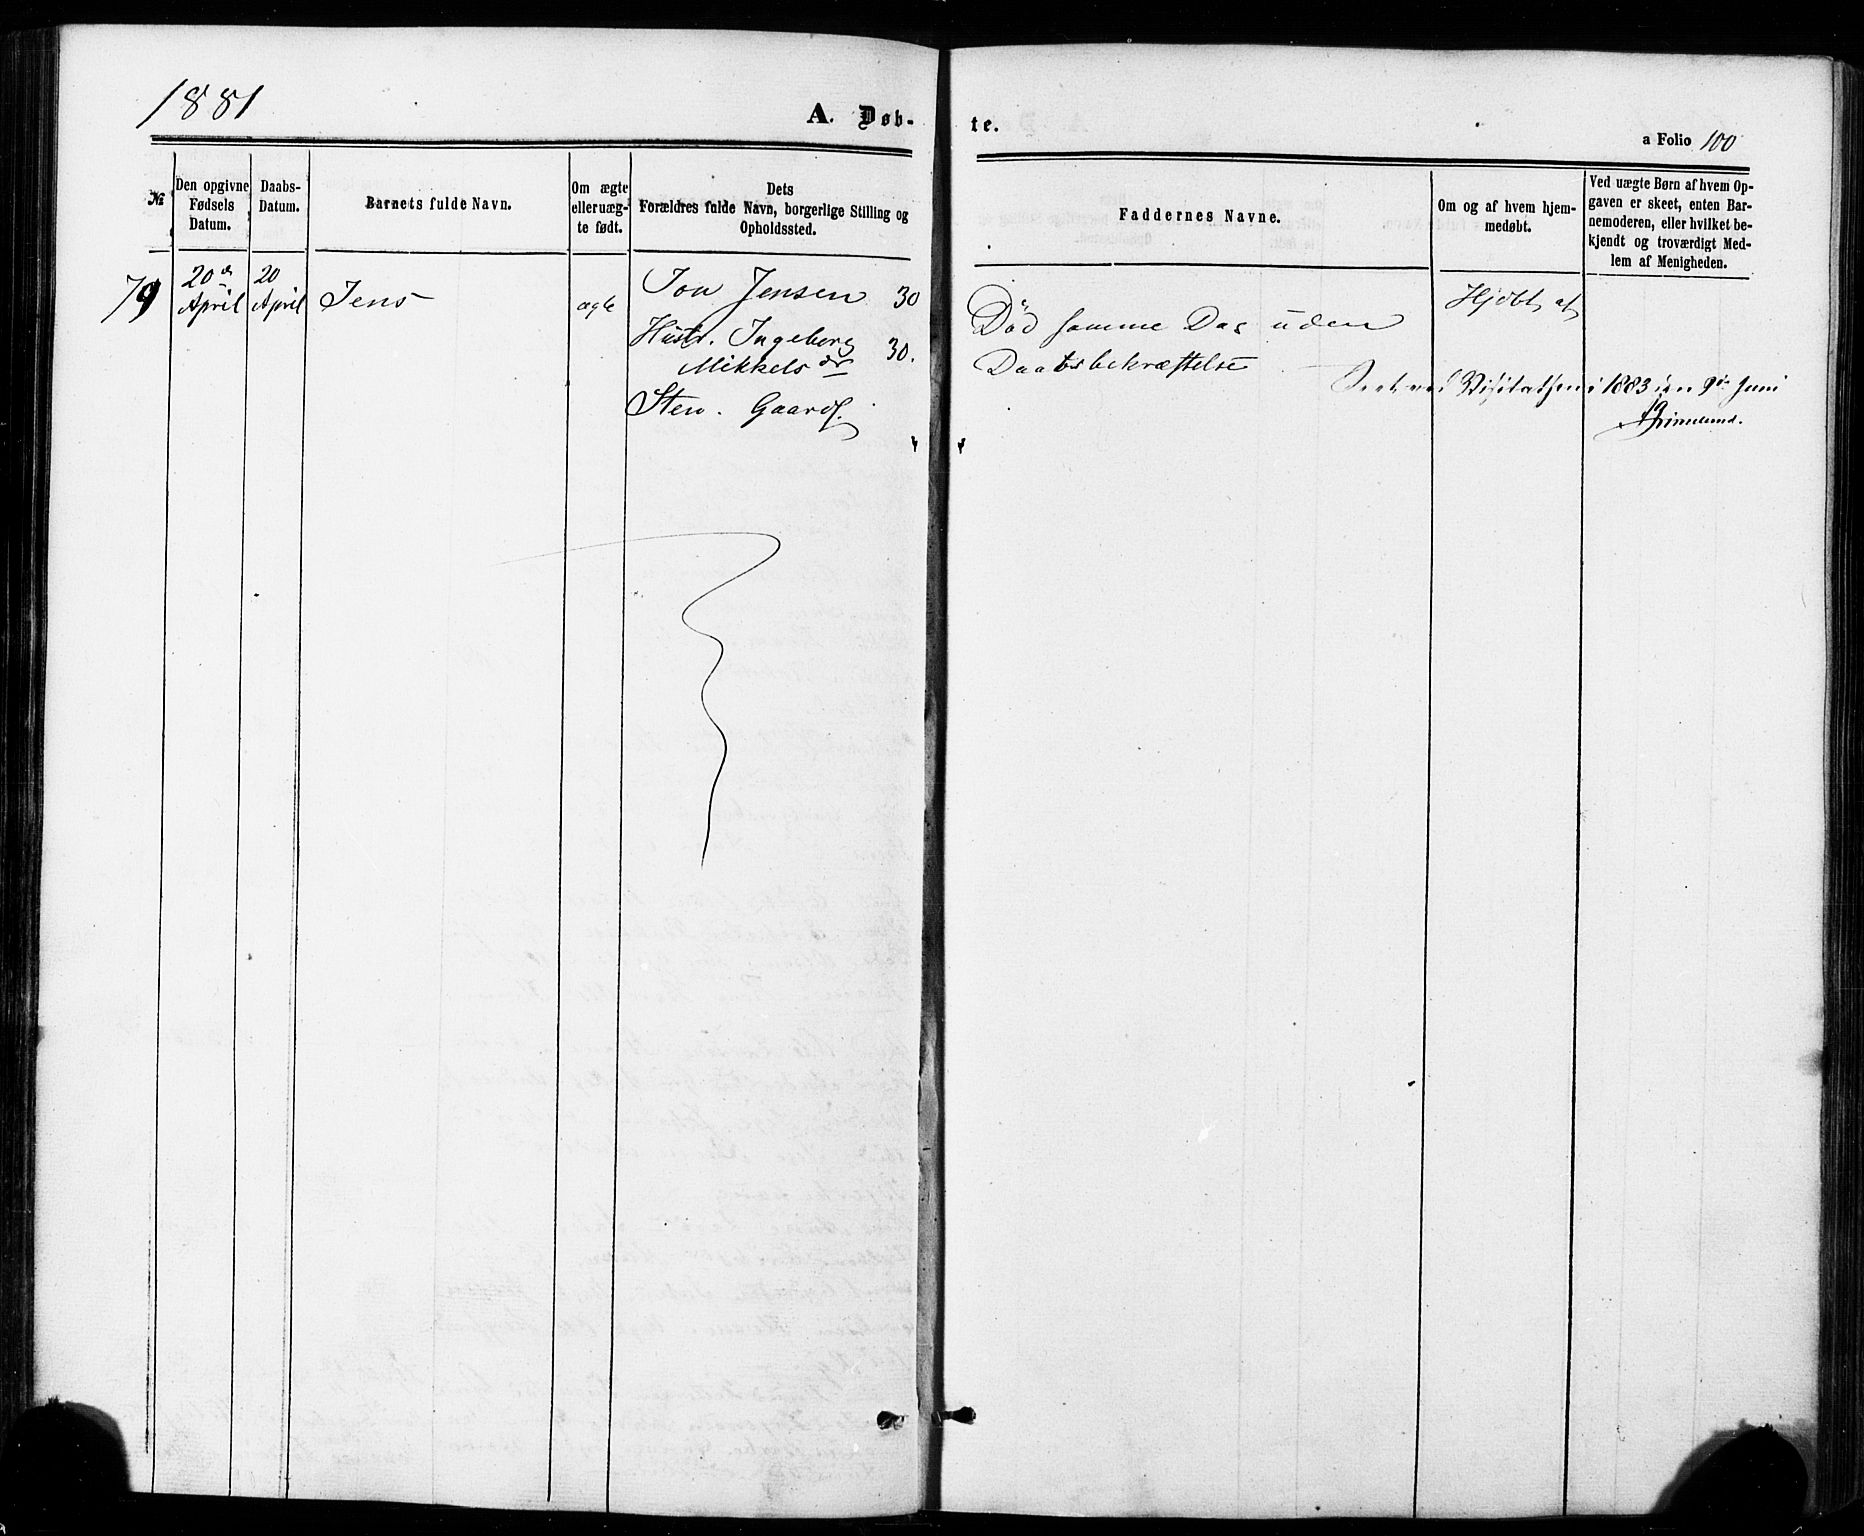 1881
A. Døb-
te.
a Folio 100
№
Den opgivne
Fødsels
Datum.
Daabs-
Datum.
Barnets fulde Navn.
Om ægte
eller uæg-
te født.
Dets
Forældres fulde Navn, borgerlige Stilling og
Opholdssted.
Faddernes Navne.
Om og af hvem hjem-
medøbt.
Ved uægte Børn af hvem Op-
gaven er skeet, enten Bar-
nemoderen, eller hvilket be-
kjendt og troværdigt Med-
lem af Menigheden.
79
20
April
20
April
Jens
ægte
Jon Jensen 30
Hustr. Ingeborg
Mikkelsdr 30.
Sten. Gaard
Død samme Dag uden
Daabsbekræftelse
Hjdbt af
Seet ved Visitatsen i 1883 den 9de Juni
Grimelund.